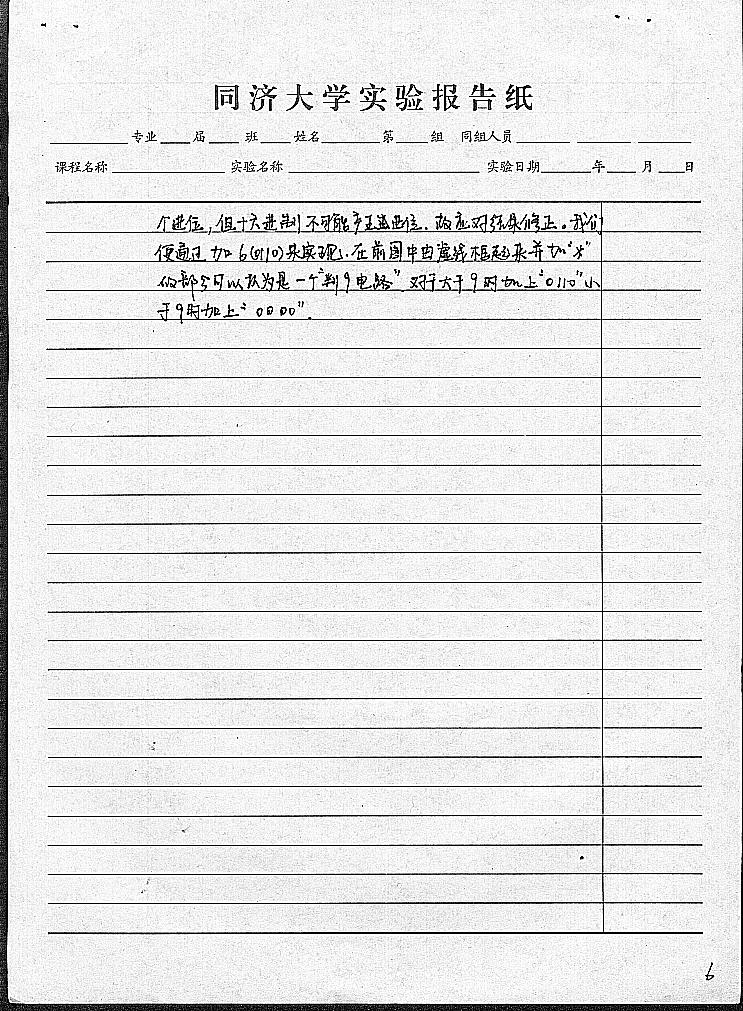 同济大学实验报告纸
专业____届____班____姓名________第____组 同组人员________ ________ ________
课程名称________________实验名称____________________________实验日期________年____月____日
个进位，但十六进制不可能产生此进位．故应对结果修正。我们
便通过加6(0110)来实现．在前图中由虚线框起来并加“*”
的部分可以认为是一个“判9电路”对于大于9时加上“0110”小
于9时加上“0000”．
6